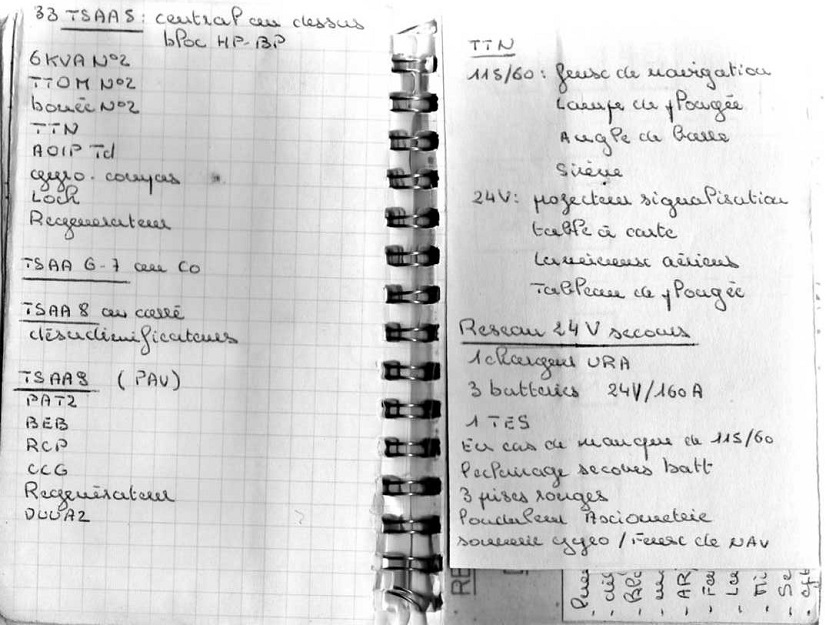 33 TSAA5: central au dessus
bloc HP-BP
6KVA N°2
TTOM N°2
bouée N°2
TTN
AOIP Td
gyro. compas
Loch
Regenerateur
TSAA 6-7 au CO
TSAA 8 au carré
désudimificateurs
TSAA9 (PAV)
PAT2
BEB
RCP
CCG
Regénérateur
DUUA2
TTN
115/60: feux de navigation
Lampe de plongée
Angle de barre
Sirène
24V: projecteur signalisation
table à carte
Lumineux aériens
Tableau de plongée
Reseau 24V secours
1 chargeur URA
3 batteries 24V/160A
1 TES
En cas de manque de 115/60
l'eclairage secours batt
3 prises rouges
l'onduleur Axiometrie
sonnerie gyro / Feux de NAV
RE